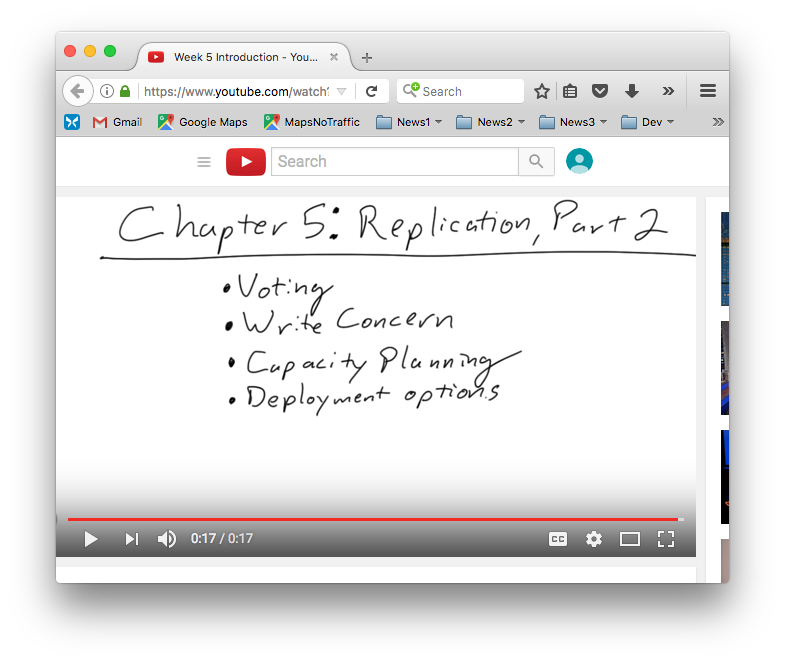 Week 5 Introduction - You...
https://www.youtube.com/watch?
Search
Gmail
Google Maps
MapsNoTraffic
News1
News2
News3
Dev
Search
Chapter 5: Replication, Part 2
• Voting
• Write Concern
• Capacity Planning
• Deployment options
0:17 / 0:17
CC